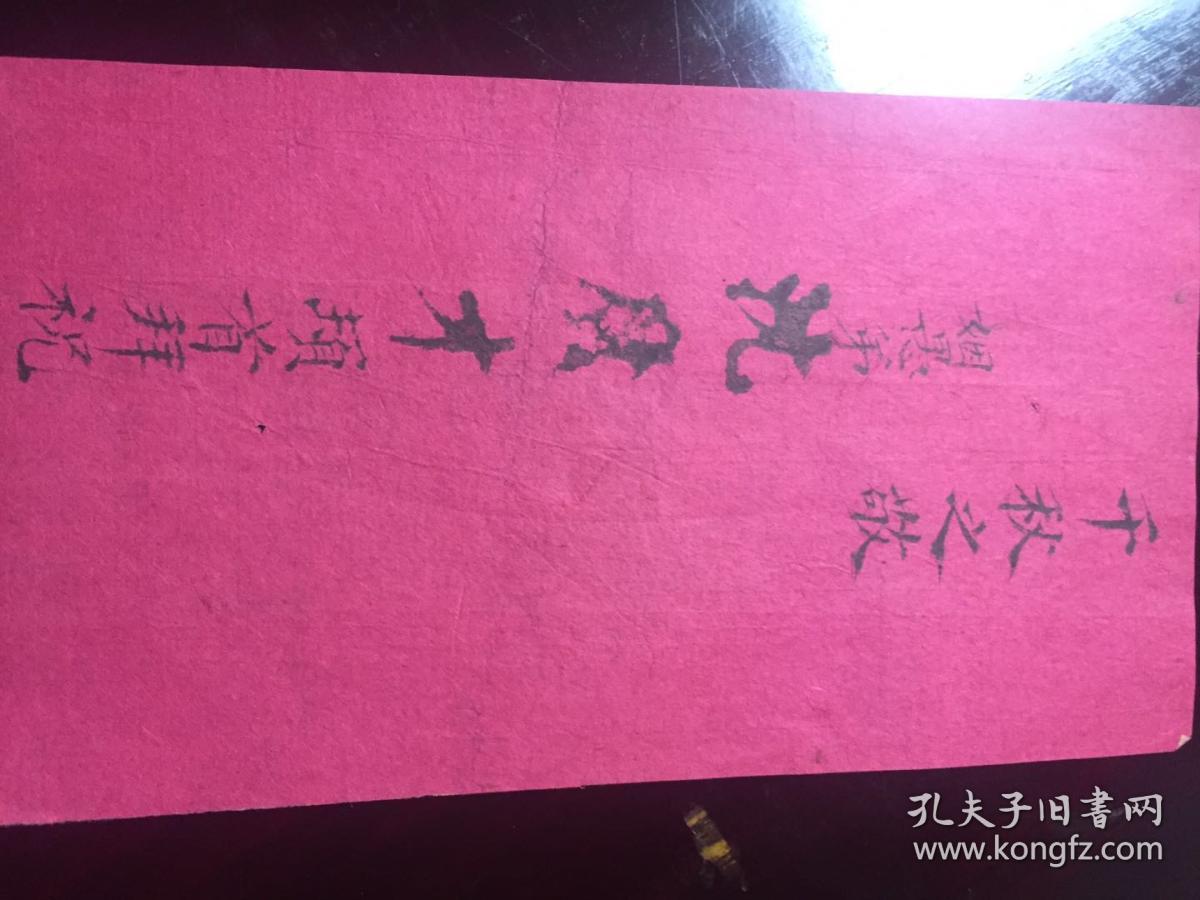 千秋之敬
姻愚弟沈 才頓首拜祝
孔夫子旧書网
www.kongfz.com